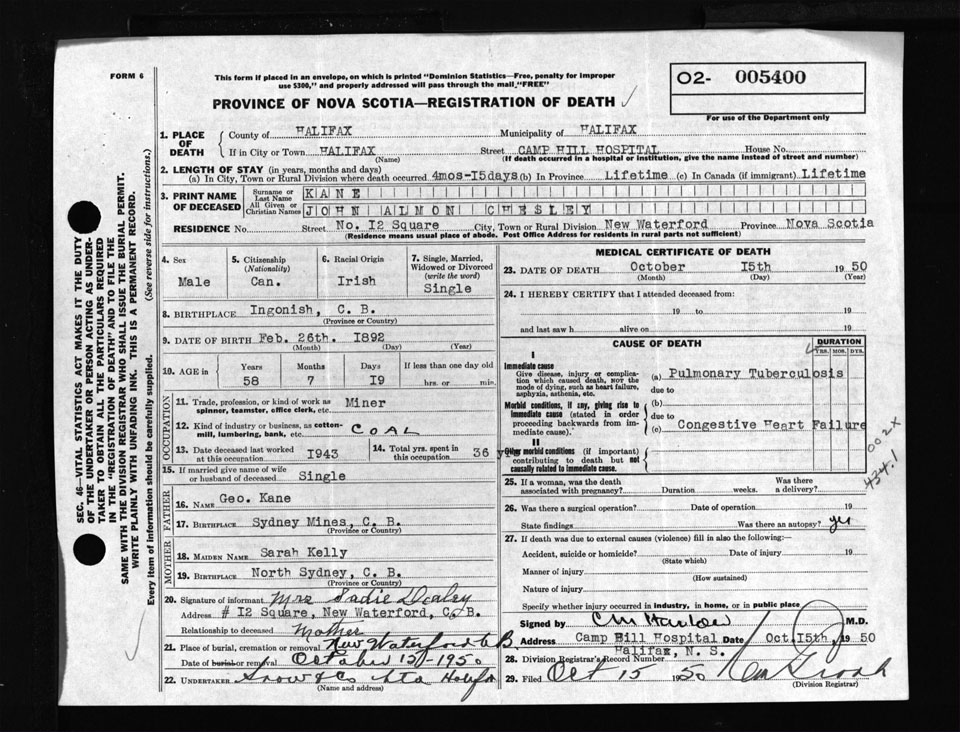 FORM 6
This form if placed in an envelope, on which is printed "Dominion Statistics—Free, penalty for improper
use $300," and properly addressed will pass through the mail "FREE"
PROVINCE OF NOVA SCOTIA—REGISTRATION OF DEATH
O2- 005400
For use of the Department only
1. PLACE OF DEATH County of HALIFAX Municipality of HALIFAX
If in City or Town HALIFAX Street CAMP HILL HOSPITAL House No.
(Name) (If death occurred in a hospital or institution, give the name instead of street and number)
2. LENGTH OF STAY (in years, months and days)
(a) In City, Town or Rural Division where death occurred 4mos-I5days (b) In Province Lifetime (c) In Canada (if immigrant) Lifetime
3. PRINT NAME OF DECEASED Surname or Last Name KANE
All Given or Christian Names JOHN ALMON CHESLEY
RESIDENCE No. Street No. I2 Square City, Town or Rural Division New Waterford Province Nova Scotia
(Residence means usual place of abode. Post Office Address for residents in rural parts not sufficient)
4. Sex
Male
5. Citizenship
(Nationality)
Can.
6. Racial Origin
Irish
7. Single, Married,
Widowed or Divorced
(write the word)
Single
8. BIRTHPLACE Ingonish, C. B.
(Province or Country)
9. DATE OF BIRTH Feb. 26th. I892
(Month) (Day) (Year)
10. AGE in Years Months Days If less than one day old
58 7 I9 hrs. or min.
OCCUPATION
11. Trade, profession, or kind of work as Miner
spinner, teamster, office clerk, etc.
12. Kind of industry or business, as cotton-
mill, lumbering, bank, etc. COAL
13. Date deceased last worked
at this occupation I943
14. Total yrs. spent in
this occupation 36 yrs
15. If married give name of wife
or husband of deceased Single
FATHER
16. NAME Geo. Kane
17. BIRTHPLACE Sydney Mines, C. B.
(Province or Country)
MOTHER
18. MAIDEN NAME Sarah Kelly
19. BIRTHPLACE North Sydney, C. B.
(Province or Country)
20. Signature of informant Mrs Sadie
Address # I2 Square, New Waterford, C. B.
Relationship to deceased Mother
21. Place of burial, cremation or removal New Waterford C B
Date of burial or removal October 15-1950
22. UNDERTAKER Snow & Co Ltd Halifax
(Name and address)
MEDICAL CERTIFICATE OF DEATH
23. DATE OF DEATH October I5th 1950
(Month) (Day) (Year)
24. I HEREBY CERTIFY that I attended deceased from:
19 to 19
and last saw h alive on 19
CAUSE OF DEATH
DURATION
YRS. MOS. DYS.
I
Immediate cause
Give disease, injury or complica-
tion which caused death, NOT the
mode of dying, such as heart failure,
asphyxia, asthenia, etc.
(a) Pulmonary Tuberculosis
due to
Morbid conditions, if any, giving rise to
immediate cause (stated in order
proceeding backwards from im-
mediate cause).
(b)
due to
(c) Congestive Heart Failure
II
Other morbid conditions (if important)
contributing to death but not
causally related to immediate cause.
002X
434.1
25. If a woman, was the death
associated with pregnancy? Duration weeks. Was there
a delivery?
26. Was there a surgical operation? Date of operation 19
State findings Was there an autopsy? yes
27. If death was due to external causes (violence) fill in also the following:—
Accident, suicide or homicide? Date of injury 19
(State which)
Manner of injury
(How sustained)
Nature of injury
Specify whether injury occurred in industry, in home, or in public place
Signed by CM Harlow M.D.
Address Camp Hill Hospital Date Oct. I5th, 1950
Halifax, N. S.
28. Division Registrar's Record Number
29. Filed Oct 15 1950
(Division Registrar)
SEC. 46—VITAL STATISTICS ACT MAKES IT THE DUTY
OF THE UNDERTAKER OR PERSON ACTING AS UNDER-
TAKER TO OBTAIN ALL THE PARTICULARS REQUIRED
IN THE "REGISTRATION OF DEATH" AND TO FILE THE
SAME WITH THE DIVISION REGISTRAR WHO SHALL ISSUE THE BURIAL PERMIT.
WRITE PLAINLY WITH UNFADING INK. THIS IS A PERMANENT RECORD.
Every item of information should be carefully supplied. (See reverse side for instructions.)